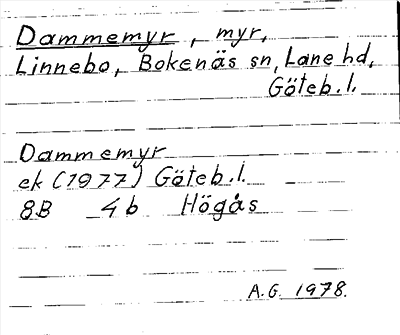 Dammemyr, myr,
Linnebo, Bokenäs sn, Lane hd,
Göteb. l.
Dammemyr
ek (1977) Göteb. l.
8B 4b Högås
A.G. 1978.